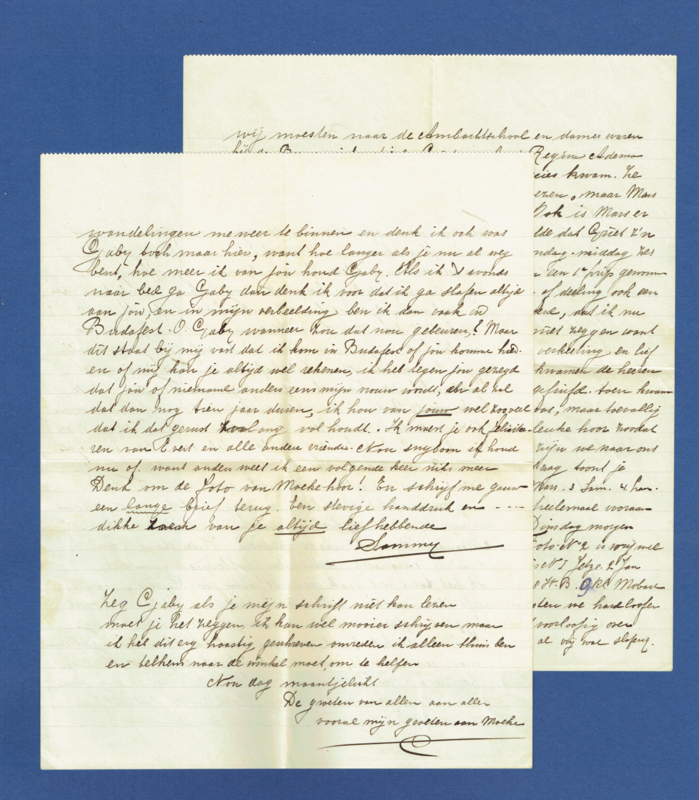 wij moesten naar de Ambachtschool en dames waren
Regina Adema
kwam. Ze
ezen, maar Mars
Ook is Mars er
lde dat Griet z'n
ndag-middag zes
den 1e prijs genomen
afdeeling ook een
dat ik nu
niet zeggen want
verkeering en lief
kwamen de heeren
toen kwam
maar toevallig
leuke hoor zoodat
zijn we naar ons
toont je
Mars. 3 Sam. 4 Han.
heelemaal vooraan
Dinsdag morgen
Foto No 2 is
2 Jan
H.B. 9
we hardlooper
voorloopig over
al vrij wat slaperig.
wandelingen me weer te binnen en denk ik ook was
Gaby toch maar hier, want hoe langer als je nu al weg
bent, hoe meer ik van jou houd Gaby. Als ik 's avonds
naar bed ga Gaby dan denk ik voor dat ik ga slapen altijd
aan jou, en in mijn verbeelding ben ik dan vaak in
Budapest. O Gaby wanneer zou dat nou gebeuren? Maar
dit staat bij mij vast dat ik kom in Budapest of jou komme hier.
en of mij kan je altijd wel rekenen, ik heb tegen jou gezegd
dat jou of niemand anders eens mijn vrouw wordt, al zal
dat dan nog tien jaar duren, ik hou van jouw wel zooveel
dat ik dat gerust zoolang vol houdt. Ik moest je ook feliciteeren
van Evert en alle andere vrienden. Nou snyboon ik houd
nu op want anders weet ik een volgende keer niks meer
Denk om de foto van Moeke hoor! En schrijf me gauw
een lange brief terug. Een stevige handdruk en ----
dikke zoen van je altijd liefhebbende
Sammy
Zeg Gaby als je mijn schrift niet kan lezen
moet je het zeggen, ik kan wel mooier schrijven maar
ik heb dit erg haastig geschreven omreden ik alleen thuis ben
en telkens naar de winkel moet om te helpen
Nou dag maantjelicht
De groeten van allen aan allen
vooral mijn groeten aan Moeke